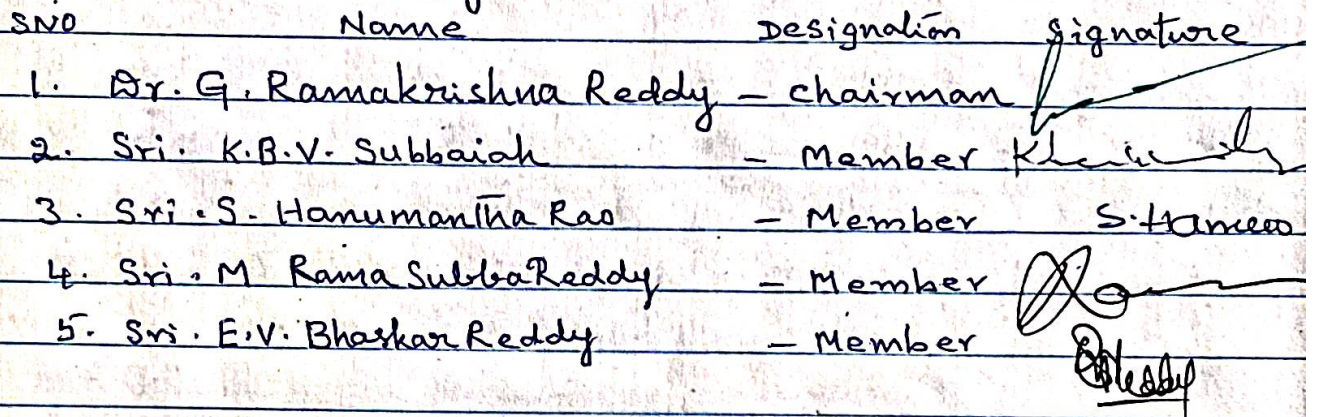 SNO Name Designation Signature
1. Dr. G. Ramakrishna Reddy - chairman
2. Sri. K.B.V. Subbaiah - Member
3. Sri. S. Hanumantha Rao - Member
4. Sri. M Rama SubbaReddy - Member
5. Sri. E.V. Bhaskar Reddy - Member